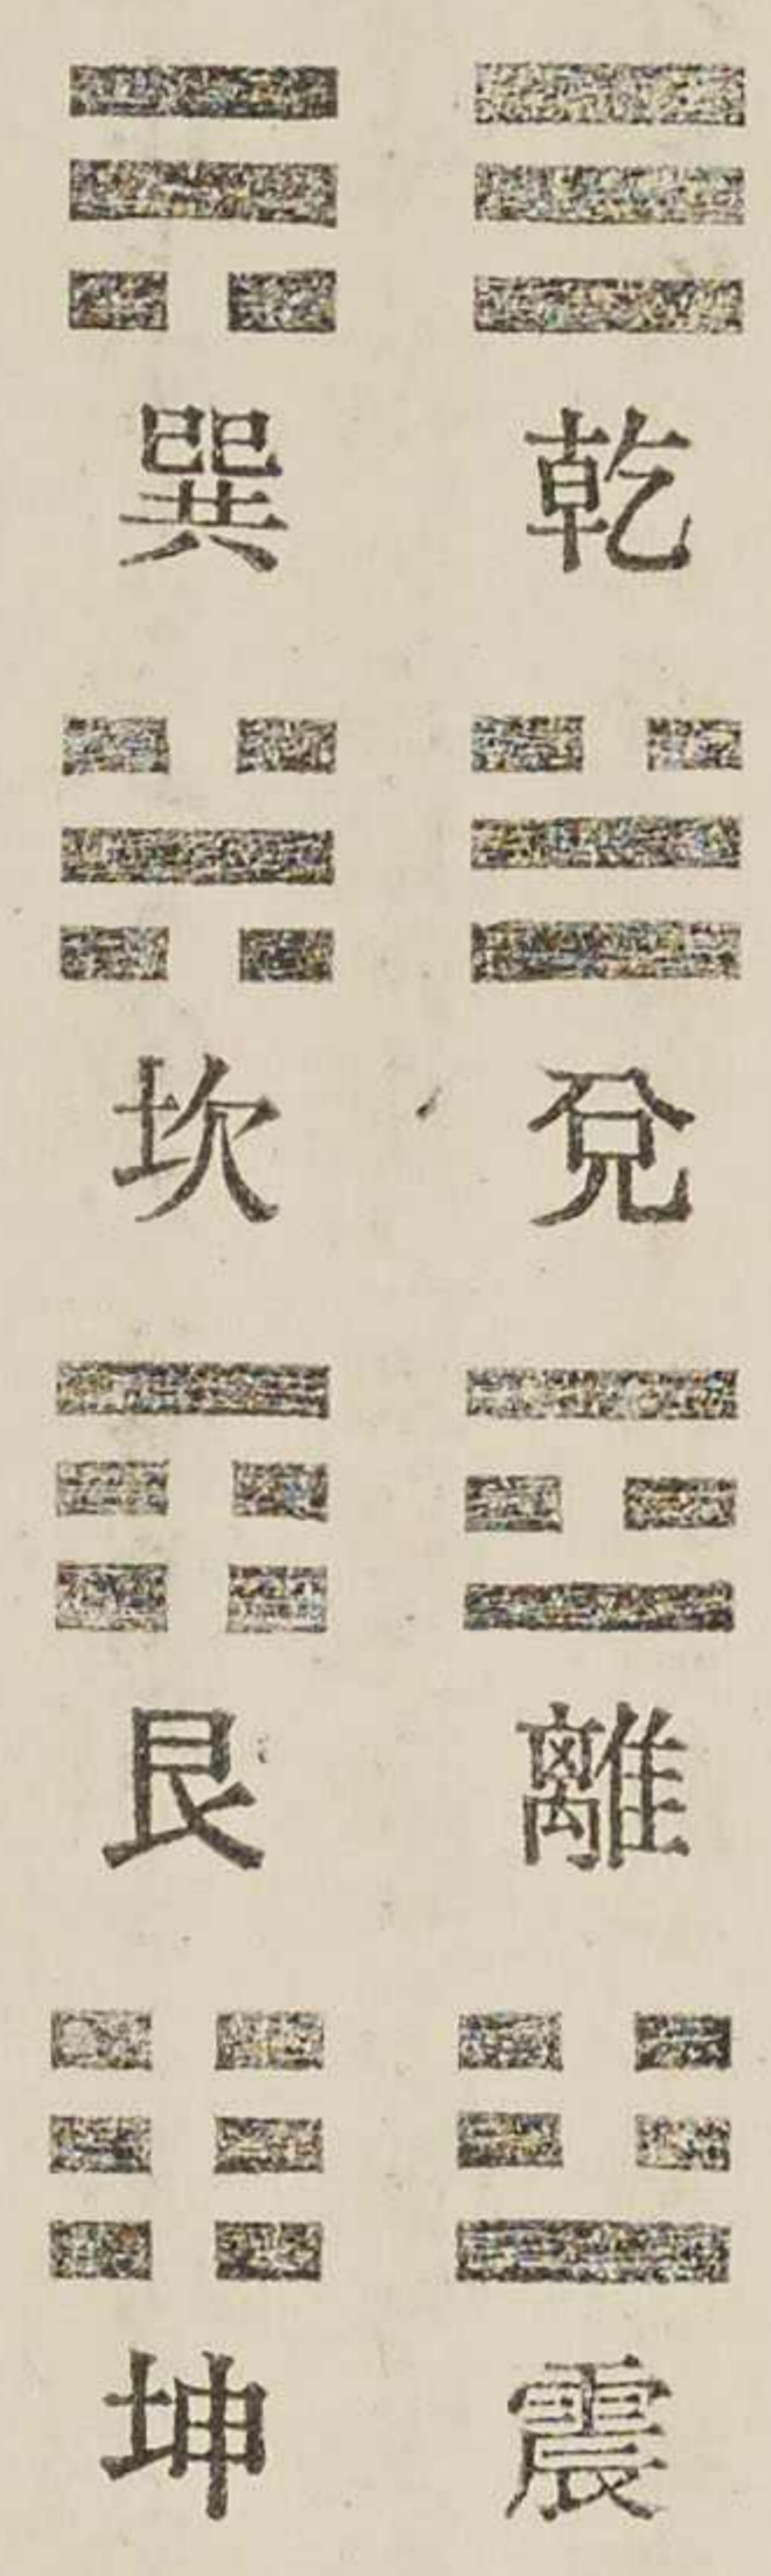 乾
兌
離
震
巽
坎
艮
坤